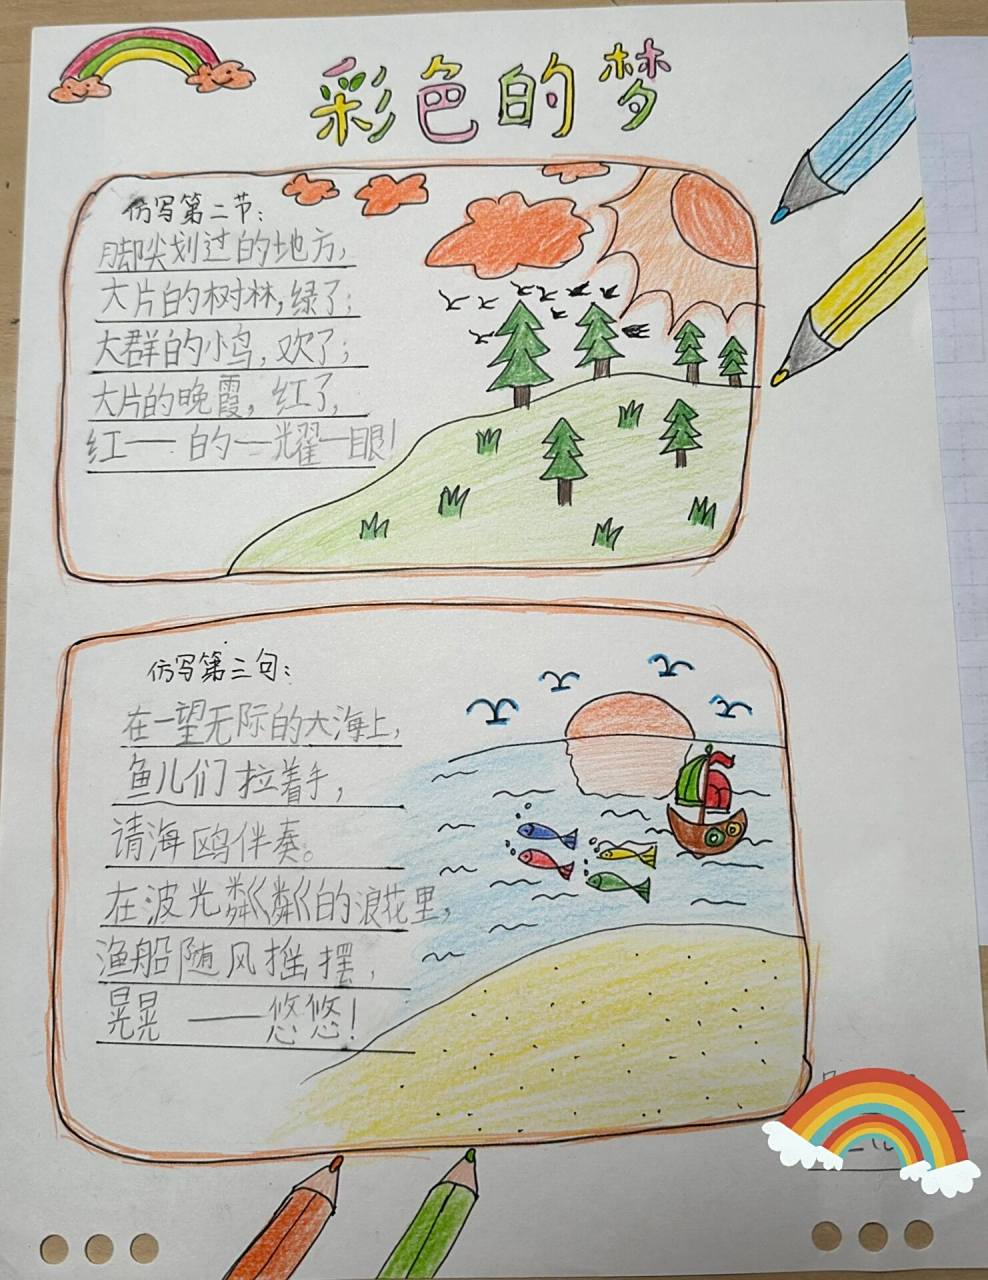 彩色的梦
仿写第二节：
脚尖划过的地方，
大片的树林，绿了；
大群的小鸟，欢了；
大片的晚霞，红了，
红——的—耀—眼！
仿写第三句：
在一望无际的大海上，
鱼儿们拉着手，
请海鸥伴奏。
在波光粼粼的浪花里，
渔船随风摇摆，
晃晃——悠悠！